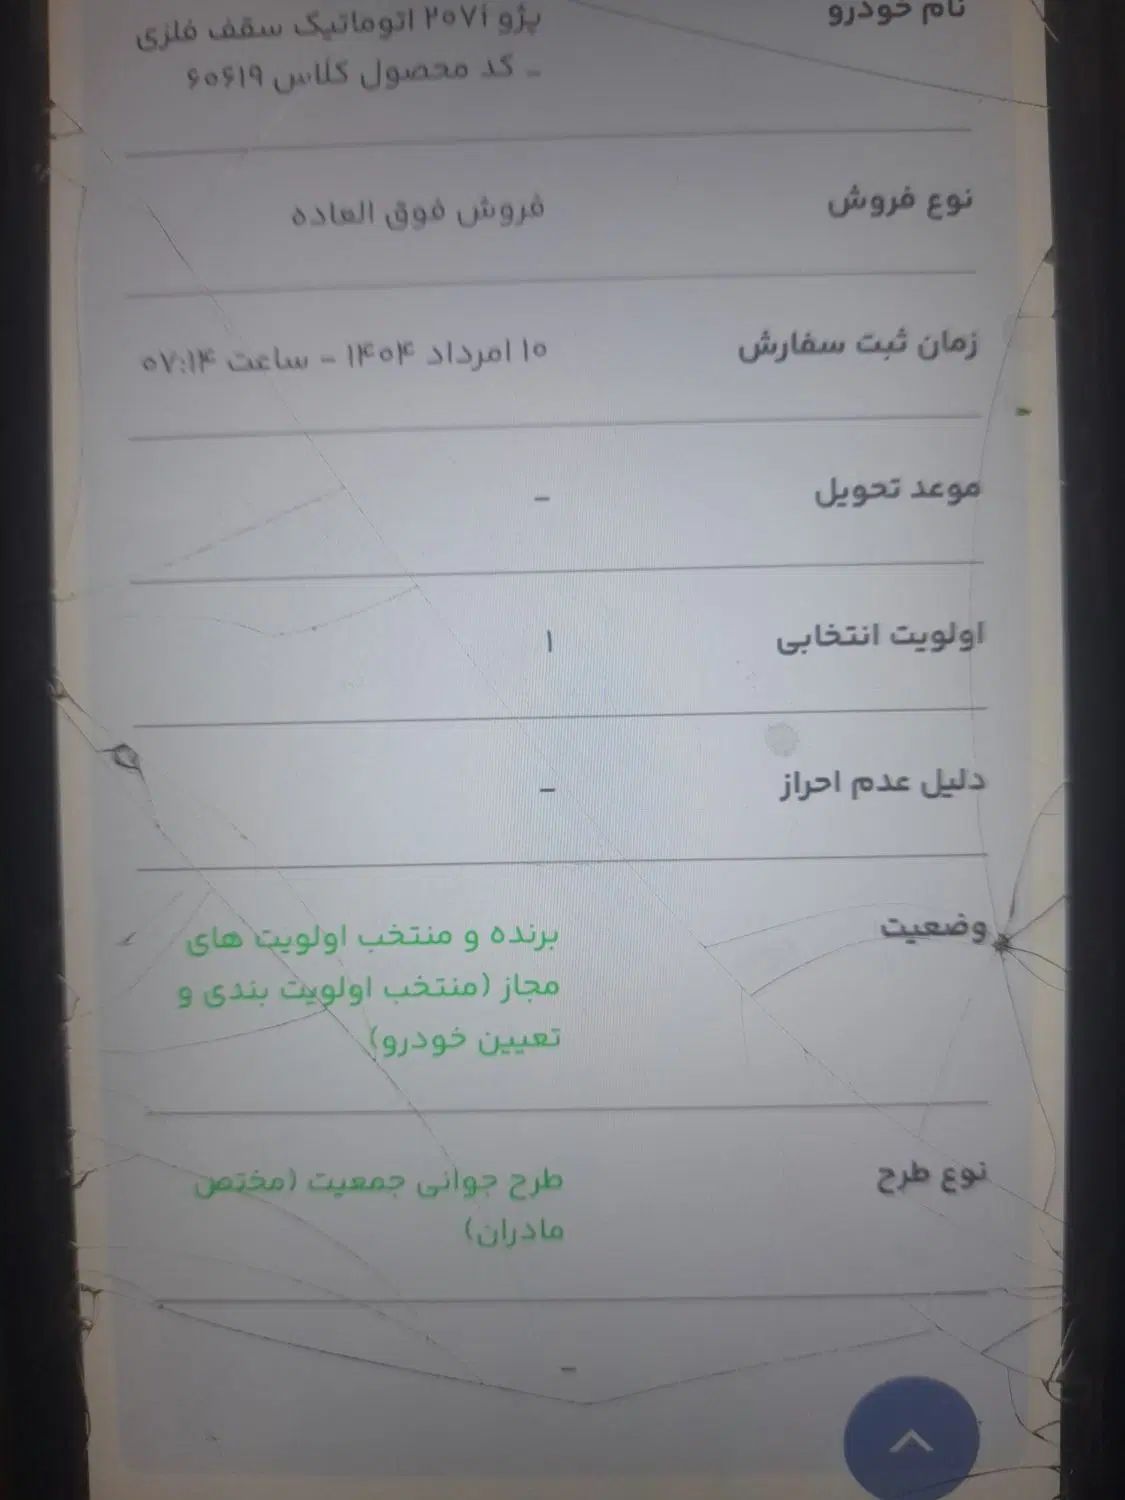 نام خودرو
پژو 207i اتوماتیک سقف فلزی
- کد محصول کلاس ۶۰۶۱۹
نوع فروش
فروش فوق العاده
زمان ثبت سفارش
۱۰ امرداد ۱۴۰۴ - ساعت ۰۷:۱۴
موعد تحویل
-
اولویت انتخابی
۱
دلیل عدم احراز
-
وضعیت
برنده و منتخب اولویت های
مجاز (منتخب اولویت بندی و
تعیین خودرو)
نوع طرح
طرح جوانی جمعیت (مختص
مادران)
-